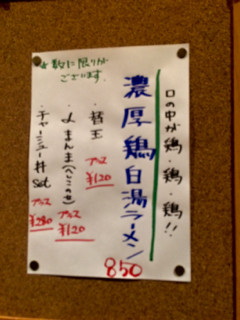 口の中が鶏・鶏・鶏!!
濃厚鶏白湯ラーメン
850
・替玉
プラス
¥120
まんま(へしこのせ)
プラス
¥120
・チャーシュー丼
set
プラス
¥280
数に限りが
ございます。